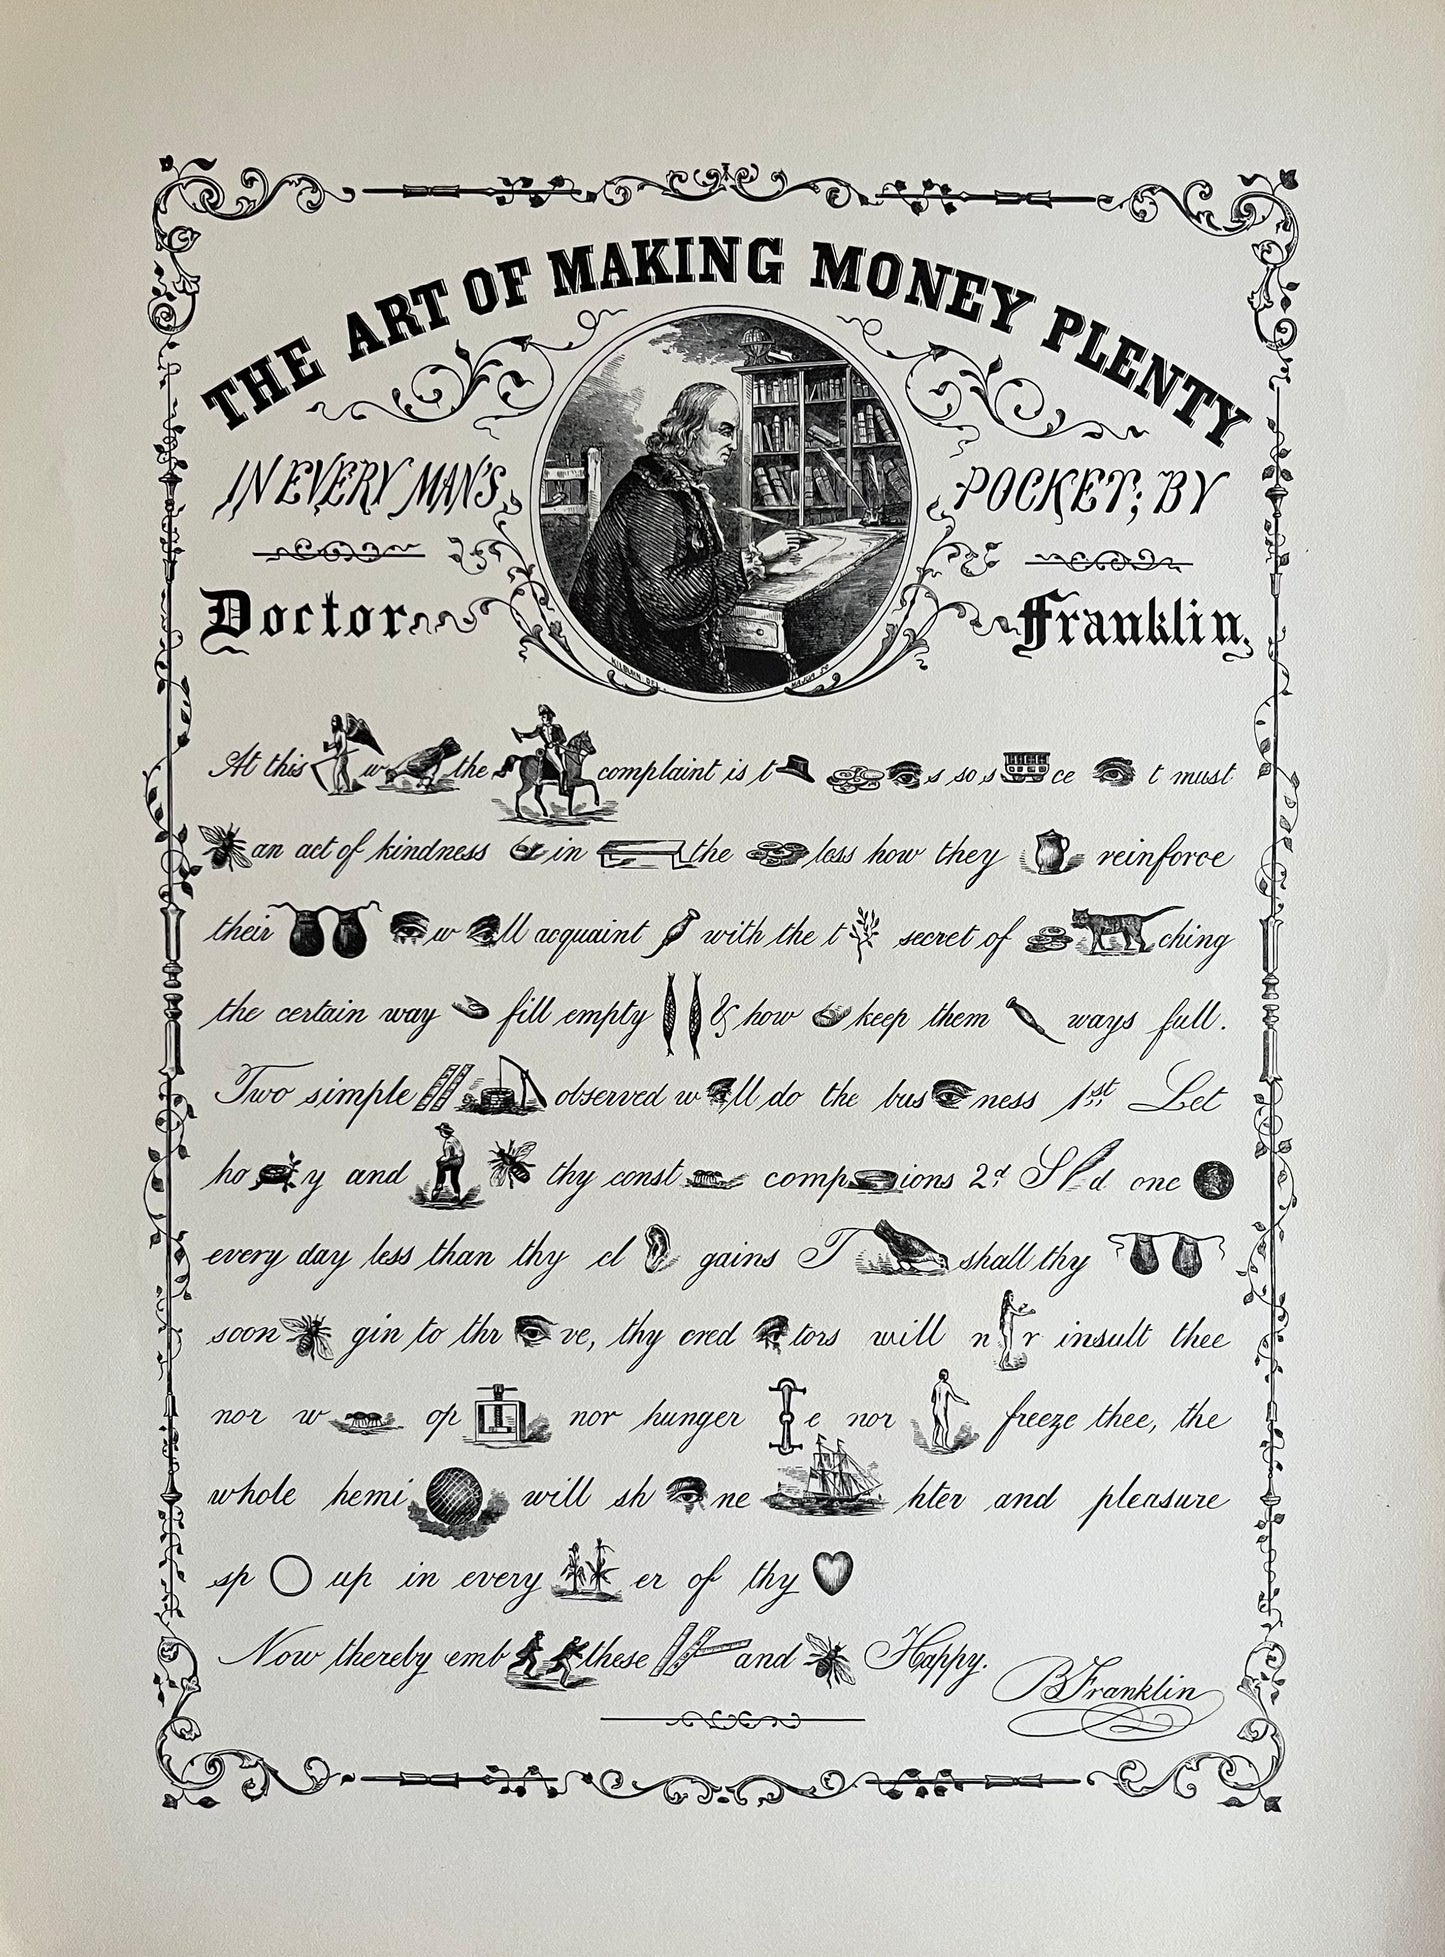 THE ART OF MAKING MONEY PLENTY
IN EVERY MAN'S POCKET; BY
Doctor Franklin.
KILBURN DEL. MAJOR SC
At this w the complaint is t s so s ce t must
an act of kindness in the less how they reinforce
their w ll acquaint with the t secret of ching
the certain way fill empty & how keep them ways full.
Two simple observed w ll do the bus ness 1st. Let
ho y and thy const comp ions 2d. S d one
every day less than thy cl gains T shall thy
soon gin to thr ve, thy cred tors will n r insult thee
nor w op nor hunger e nor freeze thee, the
whole hemi will sh ne hter and pleasure
sp up in every er of thy
Now thereby emb these and Happy.
B Franklin